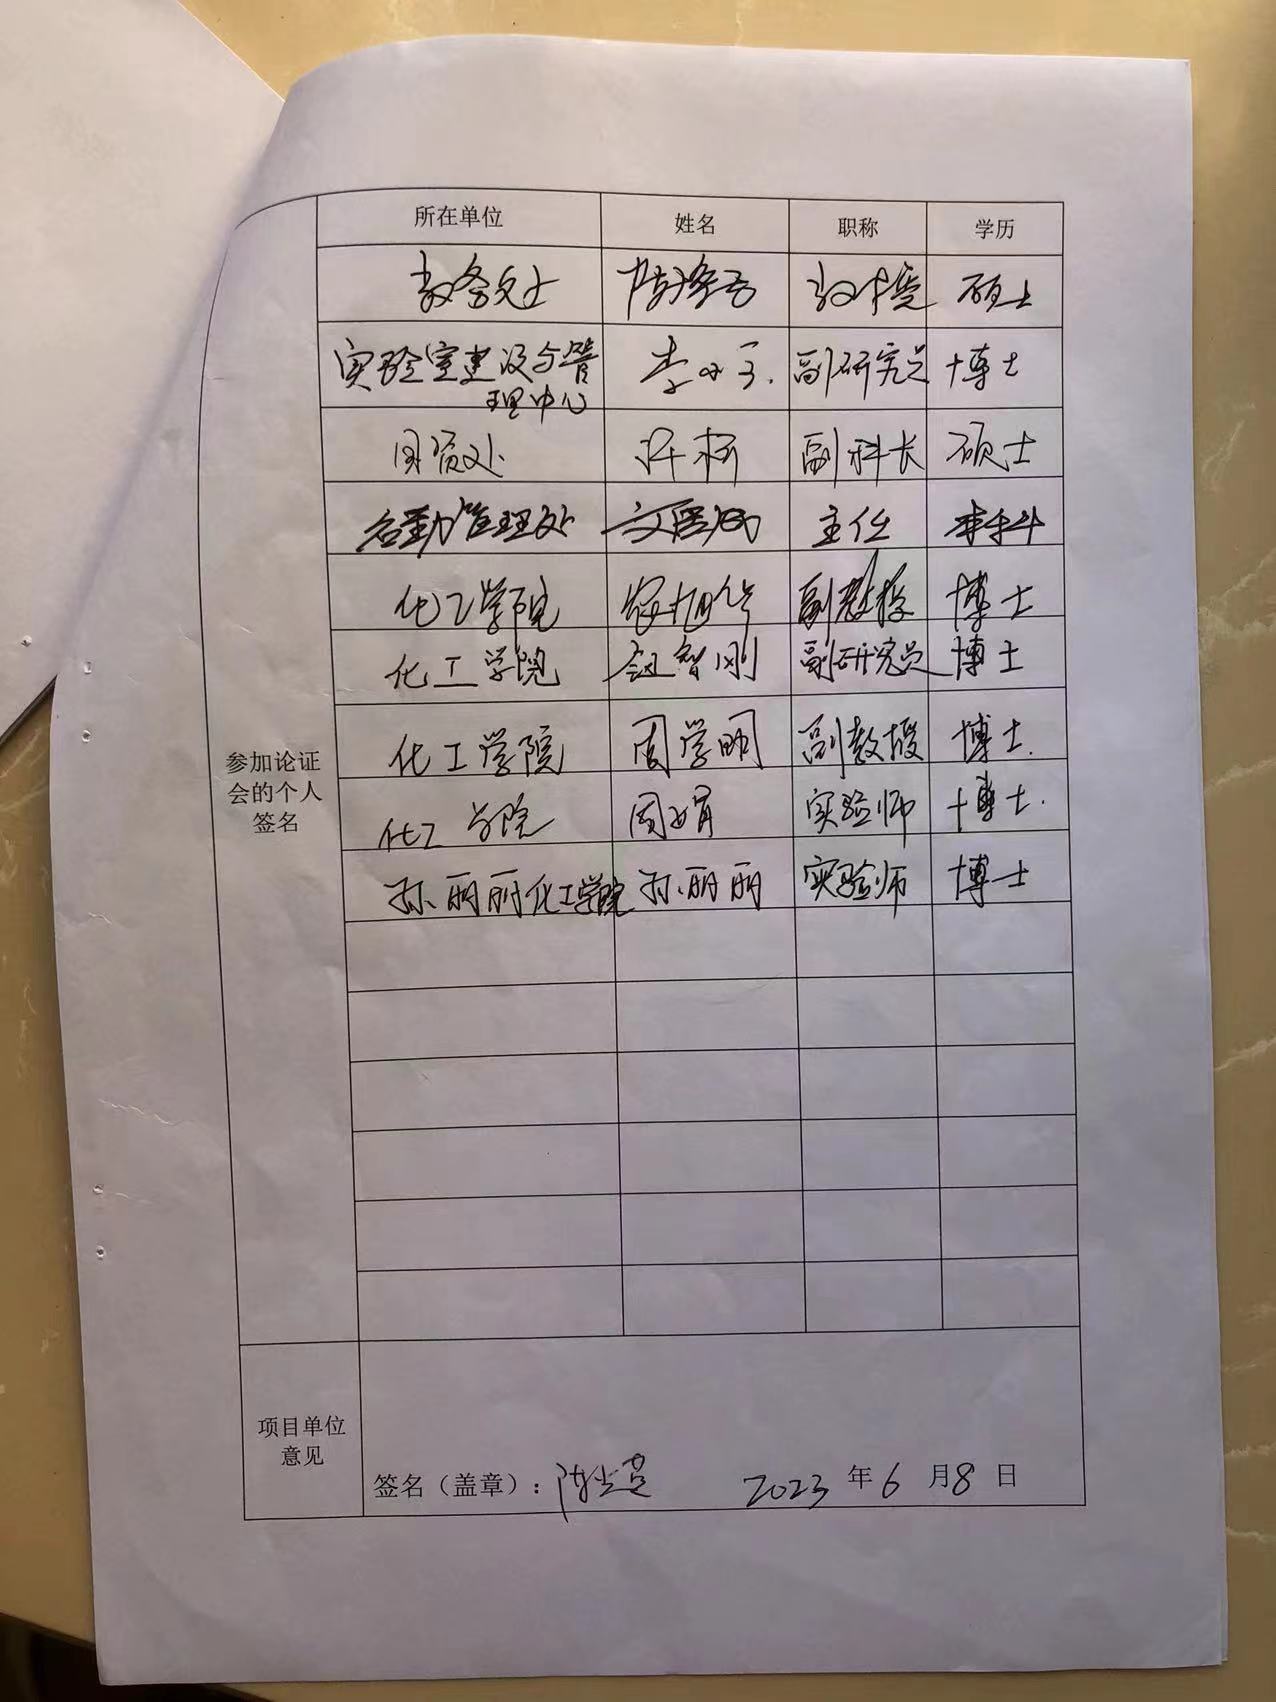 所在单位 姓名 职称 学历
教务处 教授 硕士
实验室建设与管 李 副研究员 博士
理中心
国资处 许柯 副科长 硕士
后勤管理处 主任 本科
化工学院 副教授 博士
化工学院 智刚 副研究员 博士
化工学院 周学明 副教授 博士.
化工学院 周娟 实验师 博士.
孙丽丽化工学院 孙丽丽 实验师 博士
参加论证
会的个人
签名
项目单位
意见
签名（盖章）：陈 2023 年 6 月 8 日